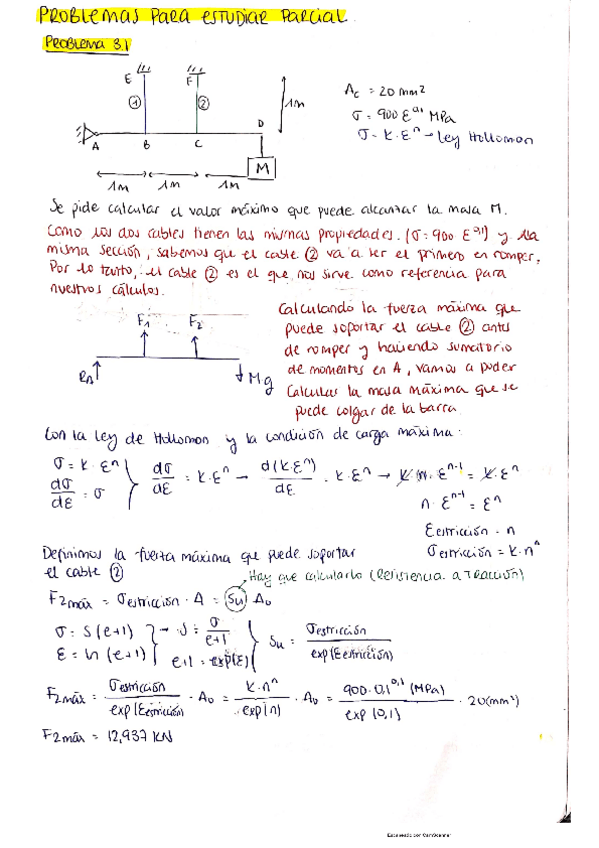 PROBLEMAS PARA ESTUDIAR PARCIAL
PROBLEMA 3.1
E F
① ② 1m
A B C D
M
1m 1m 1m
Ac = 20 mm²
σ = 900 ε^0,1 MPa
σ = K · ε^n → Ley Hollomon
Se pide calcular el valor máximo que puede alcanzar la masa M.
Como los dos cables tienen las mismas propiedades. (σ = 900 · ε^0,1) y la
misma sección, sabemos que el cable ② va a ser el primero en romper.
Por lo tanto, el cable ② es el que nos sirve como referencia para
nuestros cálculos.
F1 F2
RA Mg
Calculando la fuerza máxima que
puede soportar el cable ② antes
de romper y haciendo sumatorio
de momentos en A, vamos a poder
calcular la masa máxima que se
puede colgar de la barra
Con la Ley de Hollomon y la condición de carga máxima:
σ = K · ε^n
dσ/dε = σ
dσ/dε = K · ε^n → d(K·ε^n)/dε = K · ε^n → K · n · ε^n-1 = K · ε^n
n · ε^n-1 = ε^n
Eestricción = n
σestricción = K · n^n
Definimos la fuerza máxima que puede soportar
el cable ②
Hay que calcularlo (Resistencia a tracción)
F2máx = σestricción · A = Su A0
σ = S(e+1)
ε = ln(e+1)
→ S = σ/e+1
e+1 = exp(ε)
Su = σestricción/exp(Eestricción)
F2máx = σestricción/exp(Eestricción) · A0 = K·n^n/exp(n) · A0 = 900 · 0,1^0,1 (MPa)/exp(0,1) · 20(mm²)
F2máx = 12,937 KN
Escaneado con CamScanner